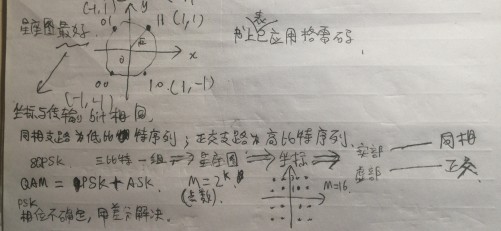 (-1,1) y
01 11 (1,1)
星座图最好.
x
书上已应用格雷码.
表
0
00 10 (1,-1)
(-1,-1)
坐标与传输bit相同.
同相支路为低比特序列; 正交支路为高比特序列.
8PSK 三比特一组 ⇒ 星座图 ⇒ 坐标 ⇒ 实部 —— 同相
虚部 —— 正交
QAM = PSK + ASK. M=2^K
(点数). M=16
PSK
相位不确定, 用差分解决.